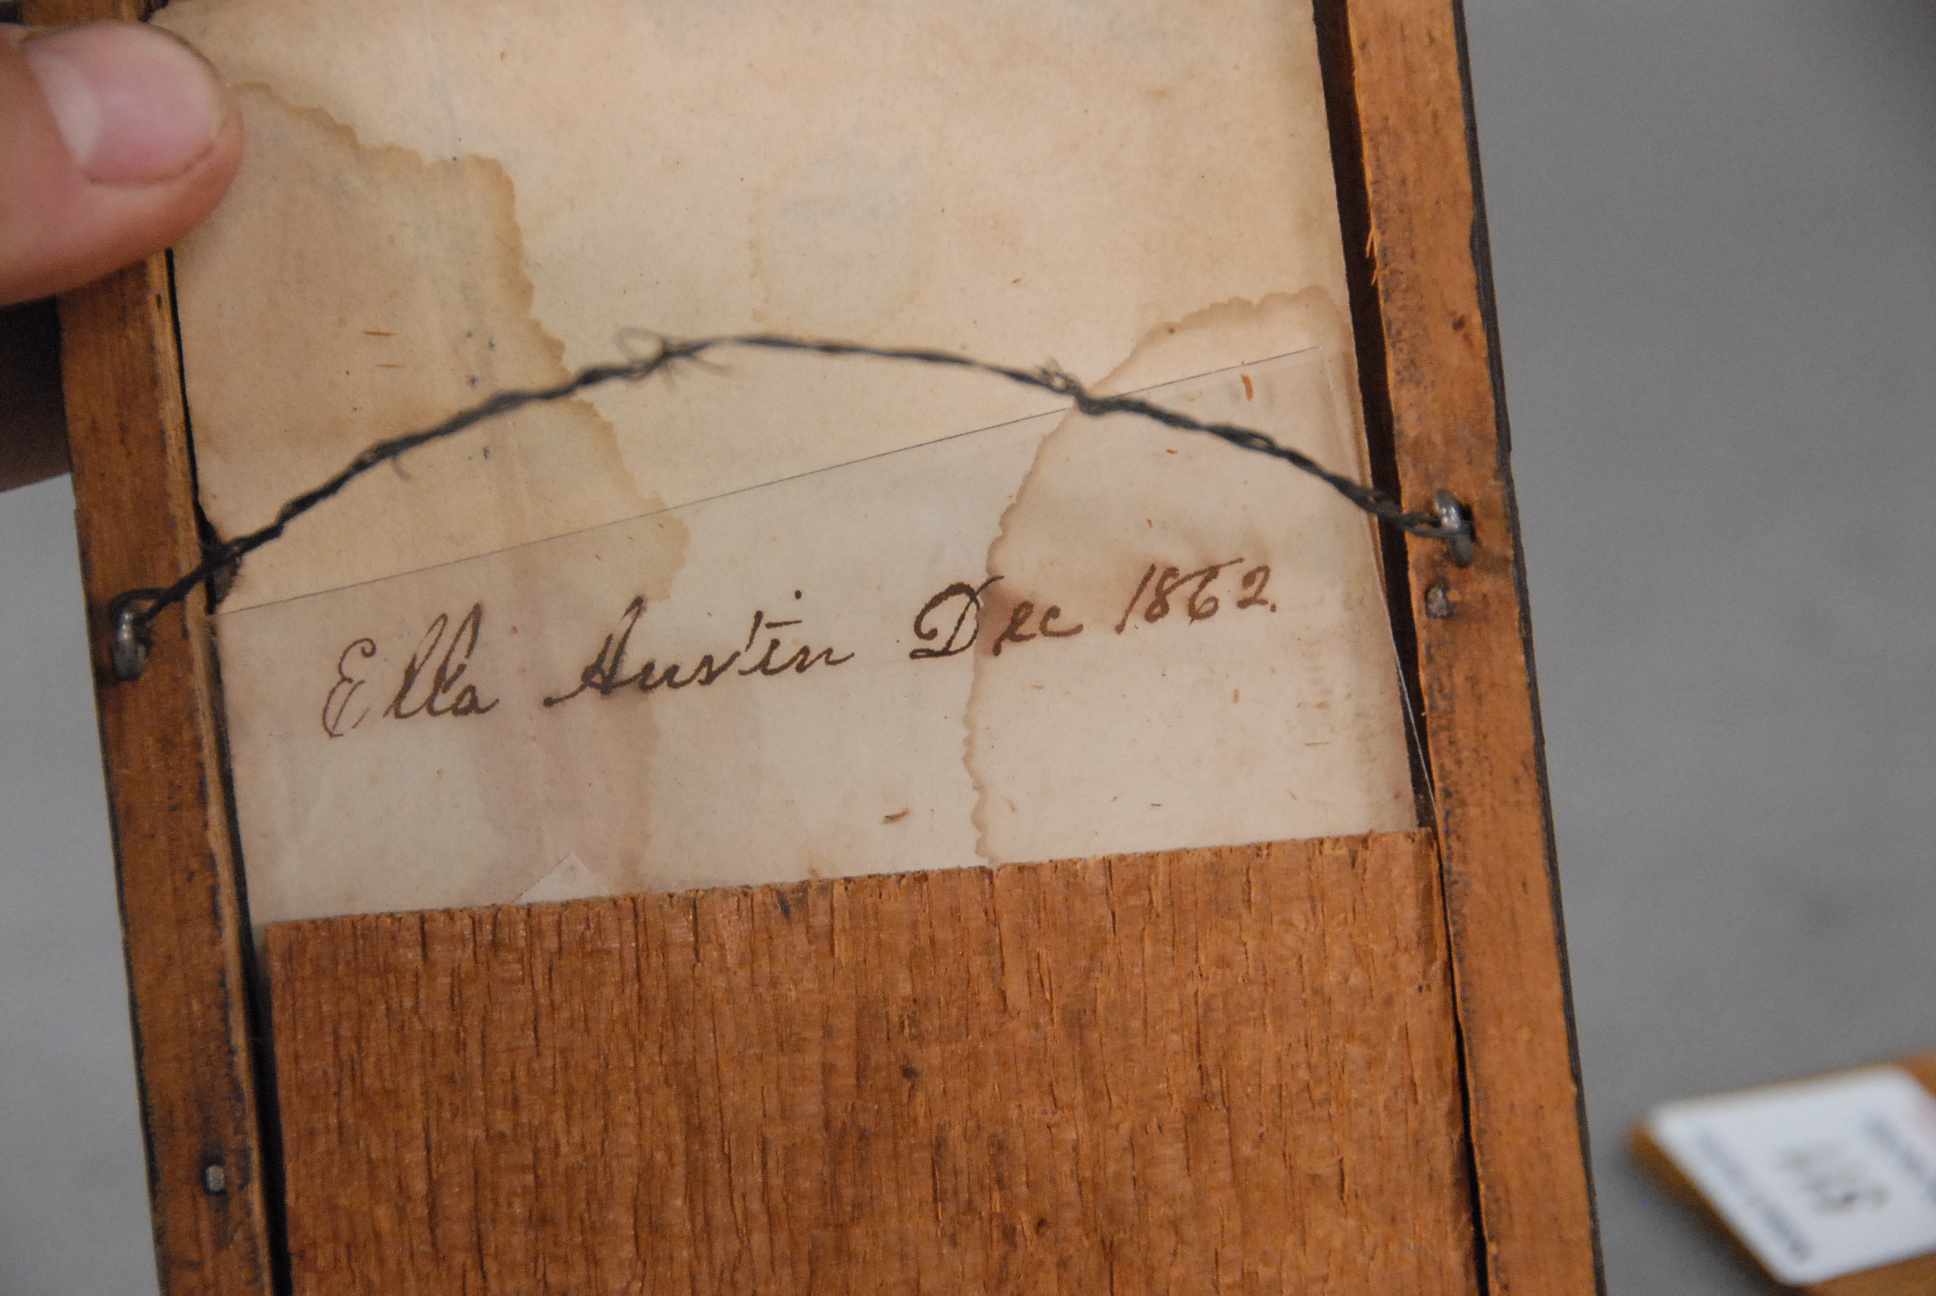 Ella Austin Dec 1862.